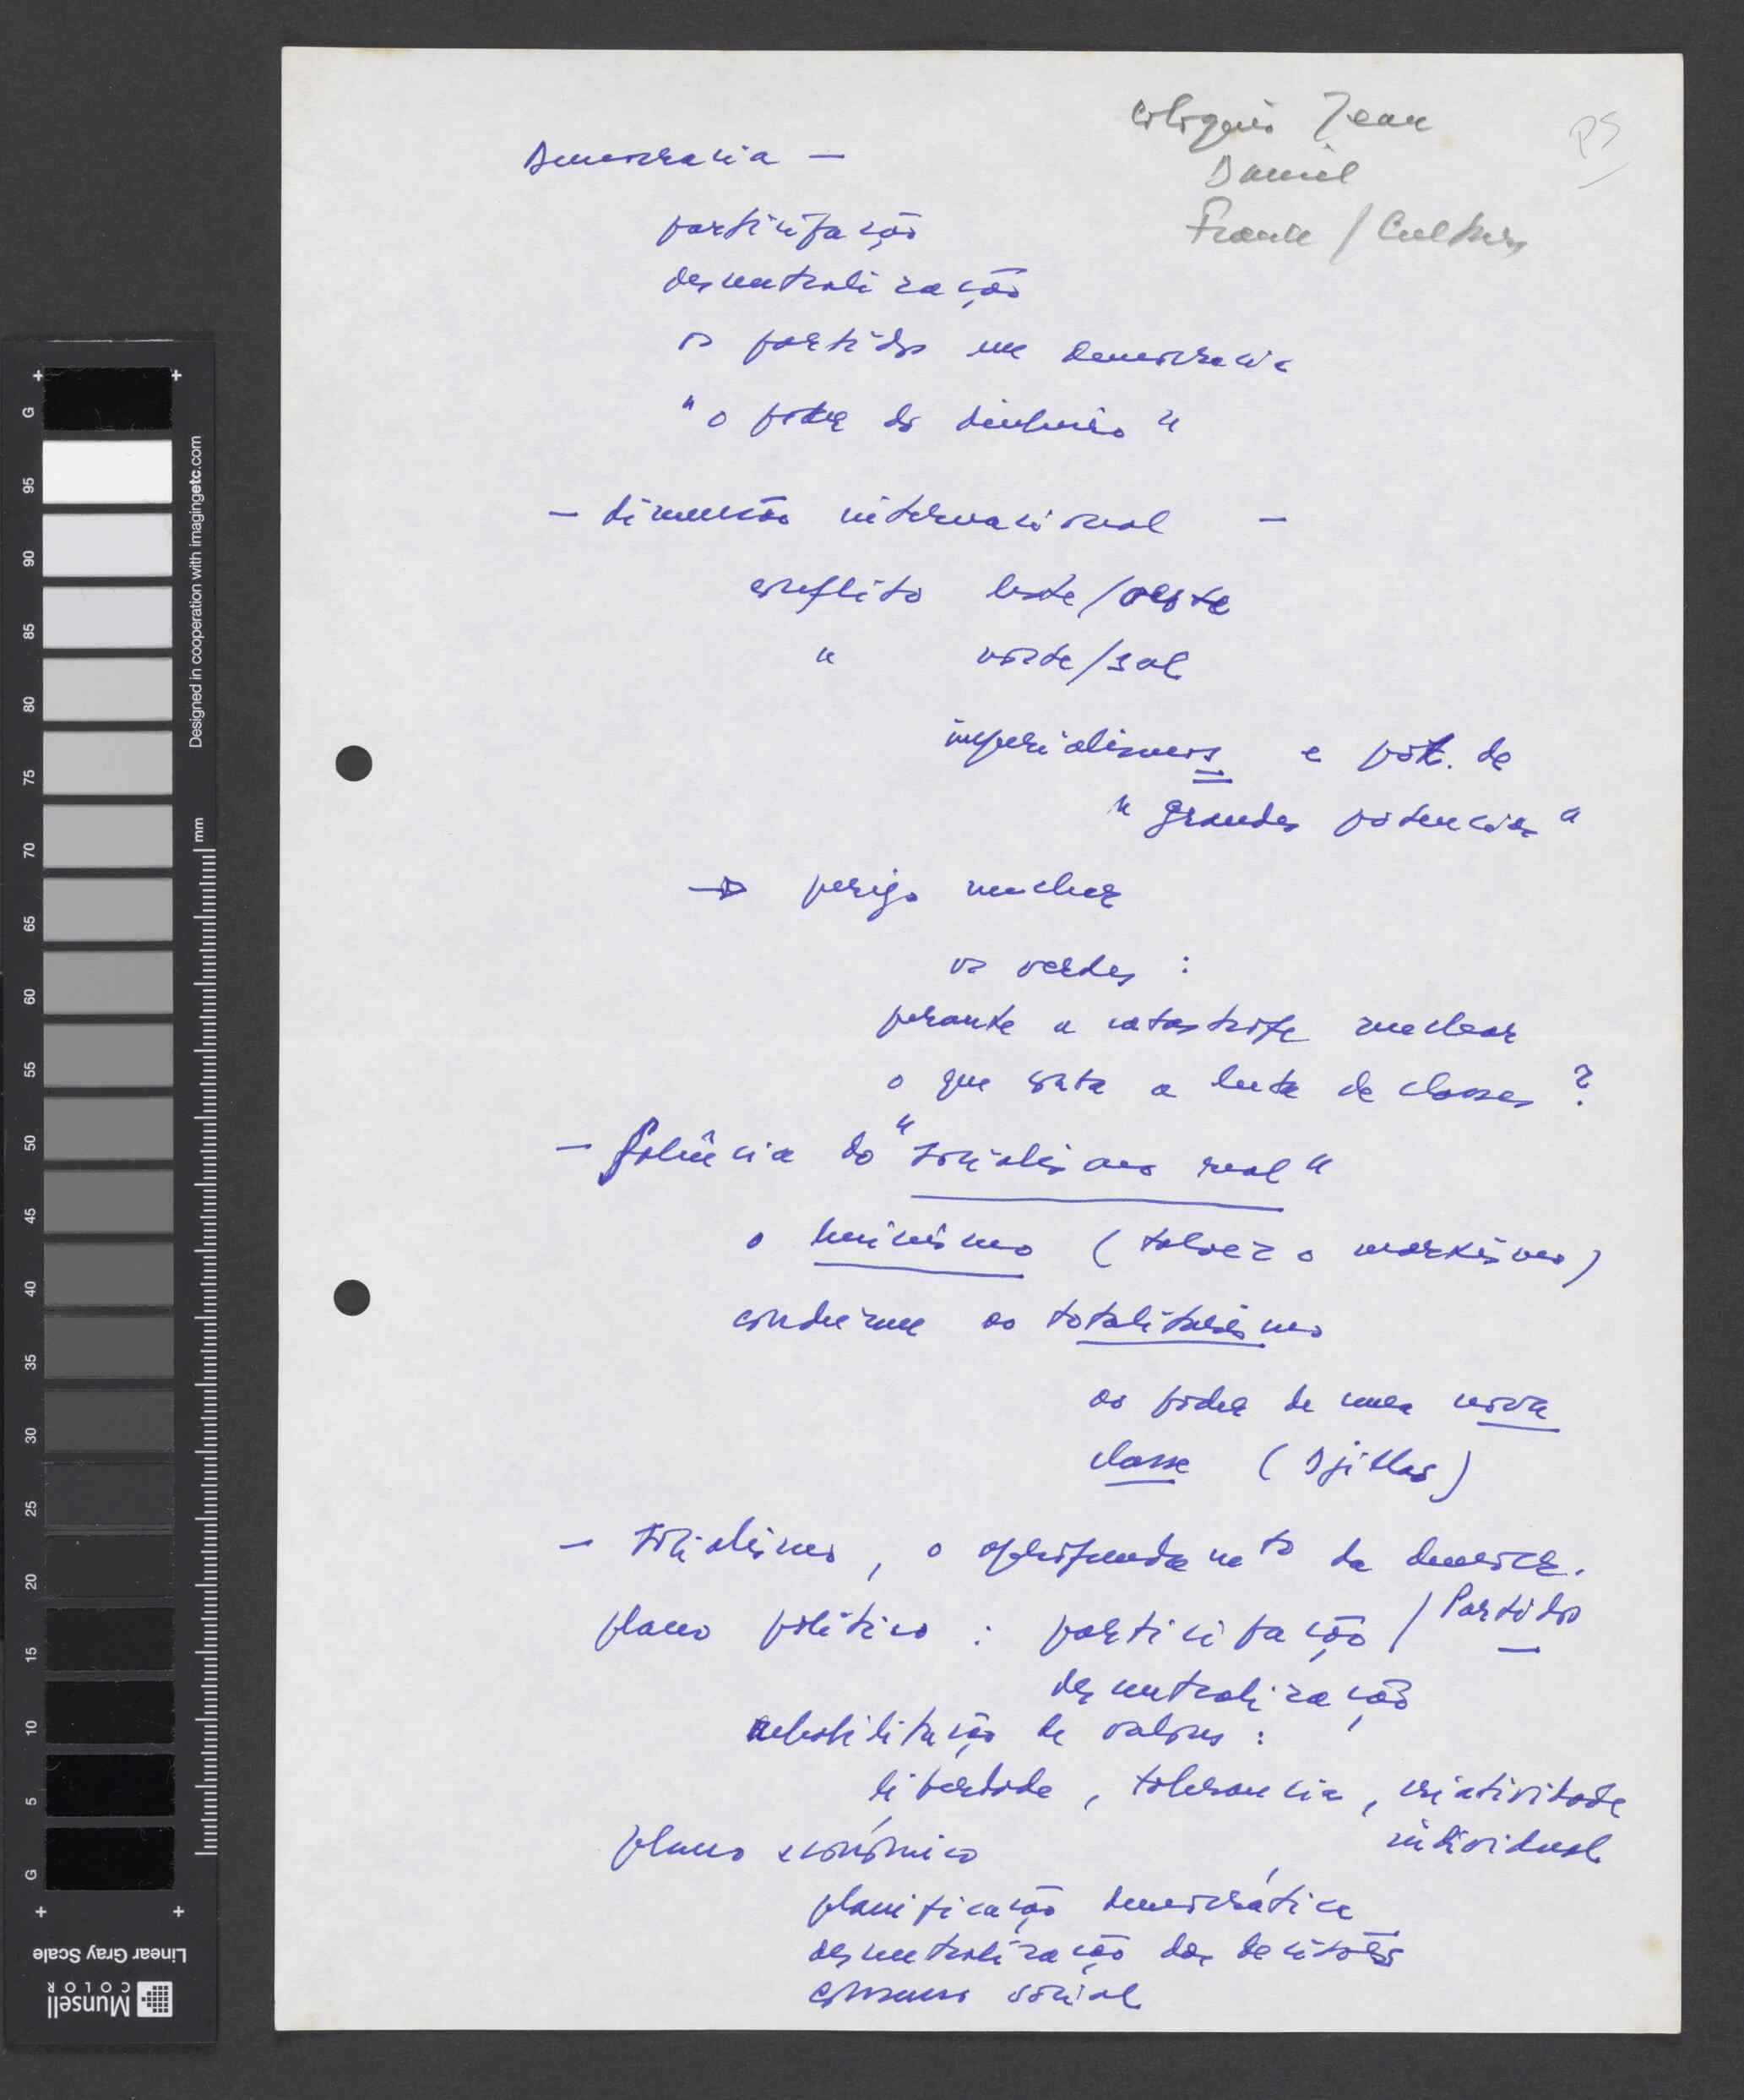 colóquio Jean
Daniel
France / Culture
PS
Democracia —
participação
descentralização
os partidos na democracia
"o poder do dinheiro"
— dimensão internacional —
conflito leste/oeste
" norte/sul
imperialismos e pot. de
"grandes potencias"
→ perigo nuclear
os verdes :
perante a catastrofe nuclear
o que conta a luta de classes ?
— falência do "socialismo real"
o leninismo (talvez o marxismo)
conduziu ao totalitarismo
ao poder de uma nova
classe (Djillas)
— socialismo, o aprofundamto da democr.
plano político : participação / Partidos
descentralização
reabilitação de valores :
liberdade, tolerancia, criatividade
individual
plano económico
planificação democrática
descentralização das decisões
consumo social
G 95 90 85 80 75 70 65 60 55 50 45 40 35 30 25 20 15 10 5 G
mm
Designed in cooperation with imagingetc.com
Linear Gray Scale
Munsell
COLOR